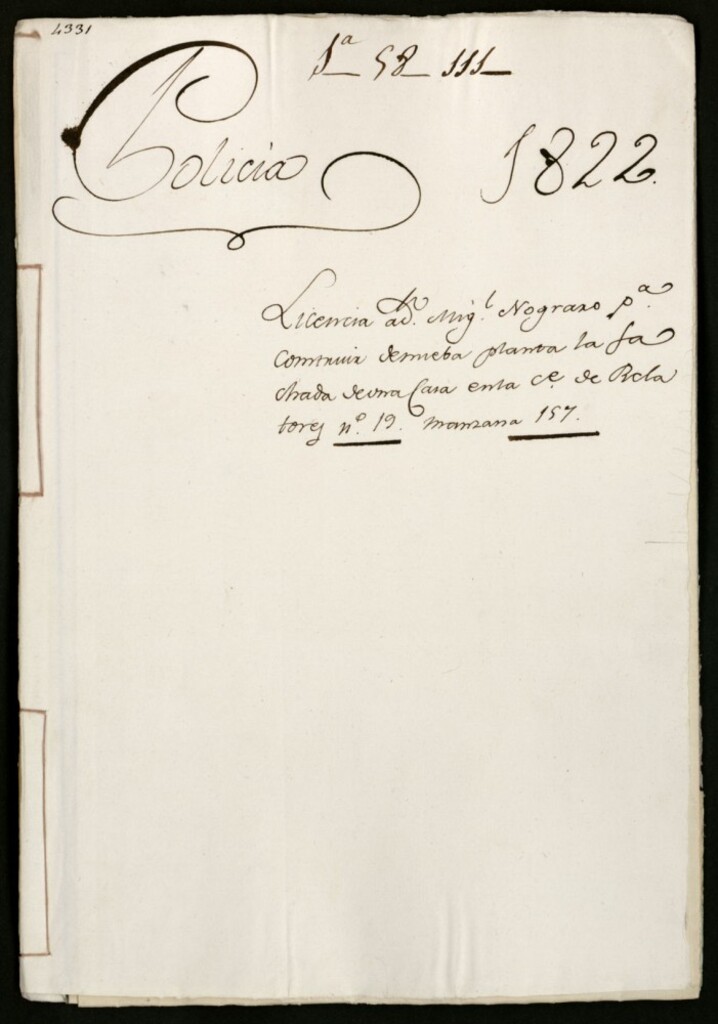 4331
1ª 58 111
Policia
1822.
Licencia á Dⁿ. Mig.ˡ Nograro pª.
construir denueba planta la fa
chada deuna Casa enla cᵉ. de Rela
tores nº. 19. manzana 157.